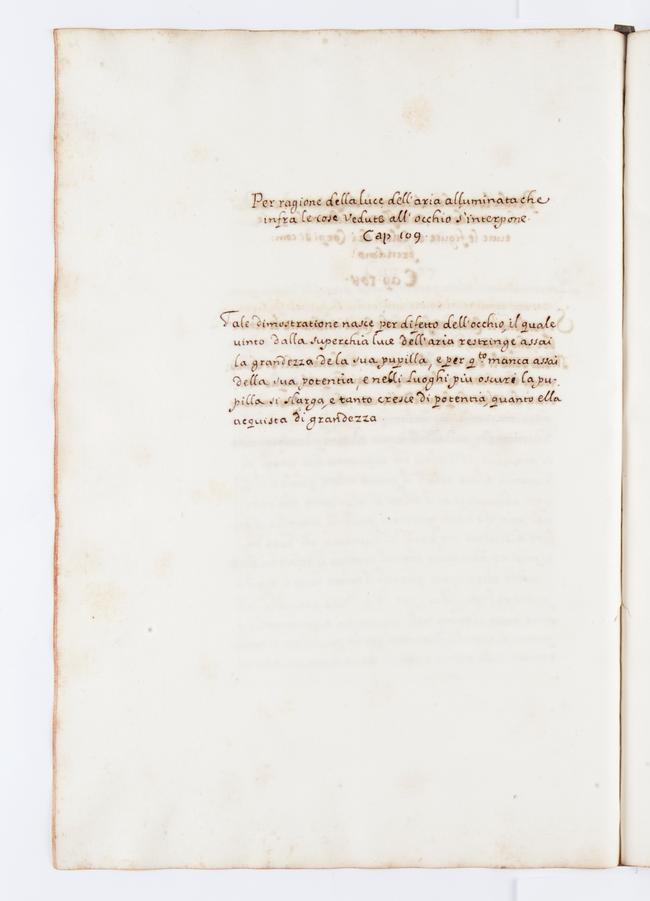 Per ragione della luce dell'aria alluminata che
infra le cose vedute all'occhio s'interpone.
Cap 109
Tale dimostratione nasce per difetto dell'occhio, il quale
vinto dalla superchia luce dell'aria restringe assai
la grandezza de la sua pupilla, e per q.to manca assai
della sua potentia, e nelli luoghi più oscuri la pu-
pilla si slarga, e tanto cresce di potentia, quanto ella
acquista di grandezza.